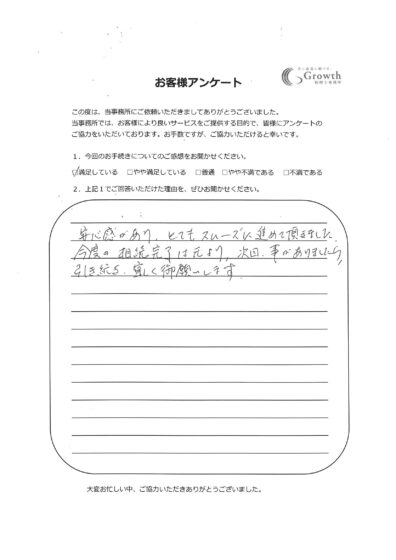 Growth
お客様アンケート
この度は、当事務所にご依頼いただきましてありがとうございました。
当事務所では、お客様により良いサービスをご提供する目的で、皆様にアンケートの
ご協力をいただいております。お手数ですが、ご協力いただけると幸いです。
１．今回のお手続きについてのご感想をお聞かせください。
☑満足している □やや満足している □普通 □やや不満である □不満である
２．上記１でご回答いただけた理由を、ぜひお聞かせください。
安心感があり、とてもスムーズに進めて頂きました.
今度の相続完了は元より、次回、事がありましたら、
引き続き、宜しく御願いします.
大変お忙しい中、ご協力いただきありがとうございました。